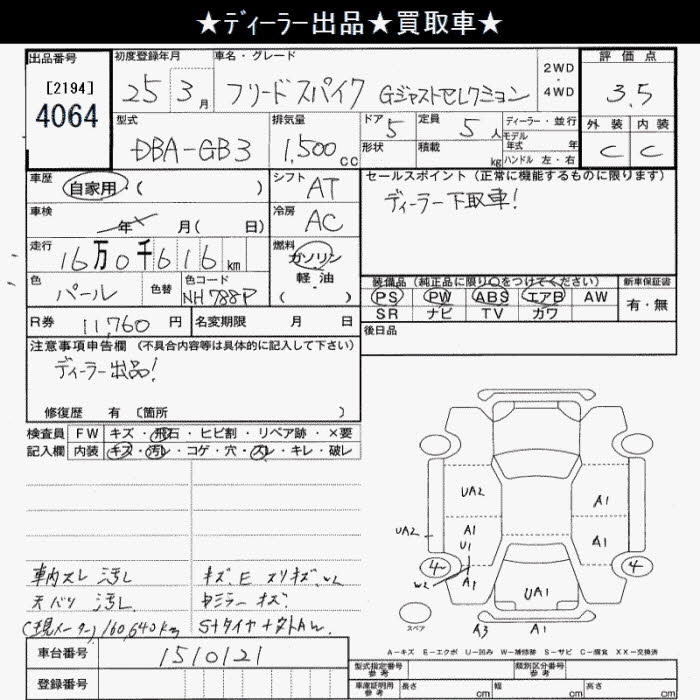 ★ディーラー出品★買取車★
出品番号 初度登録年月 車名・グレード 2WD・4WD 評価点
[2194]
4064
25 3月 フリード スパイク Gジャストセレクション 3.5
型式 排気量 ドア 定員 ディーラー・並行 外装 内装
DBA-GB3 1,500cc 5 5人 モデル年式 年 C C
形状 積載 kg ハンドル 左・右
車歴 自家用・( ) シフト AT セールスポイント (正常に機能するものに限ります)
ディーラー下取車!
車検 年 月( 日) 冷房 AC
走行 16万0千616km 燃料 ガソリン・軽油 ( )
色 パール 色替 色コード NH788P
装備品(純正品に限り○をつけてください) 新車保証書
PS PW ABS エアB AW 有・無
SR ナビ TV カワ
R券 11,760円 名変期限 月 日
後日品
注意事項申告欄 (不具合内容等は具体的に記入して下さい)
ディーラー出品!
修復歴 有 〔箇所 〕
検査員 FW キズ・飛石・ヒビ割・リペア跡・×要
記入欄 内装 キズ・汚レ・コゲ・穴・スレ・キレ・破レ
UA2 A1
UA2 A1 U1 A1
4 W2 A1 4
UA1
スペア A3 A1
車内スレ 汚レ キズ.E スリキズ.
天バリ 汚レ ミラー キズ.
(現メーター)160,640km S+タイヤ+
A-キズ E-エクボ U-凹み W-補修跡 S-サビ C-腐食 XX-交換済
車台番号 1510121
登録番号
型式指定番号 参考 類別区分番号 参考
車庫証明用 参考 長さ cm 幅 cm 高さ cm